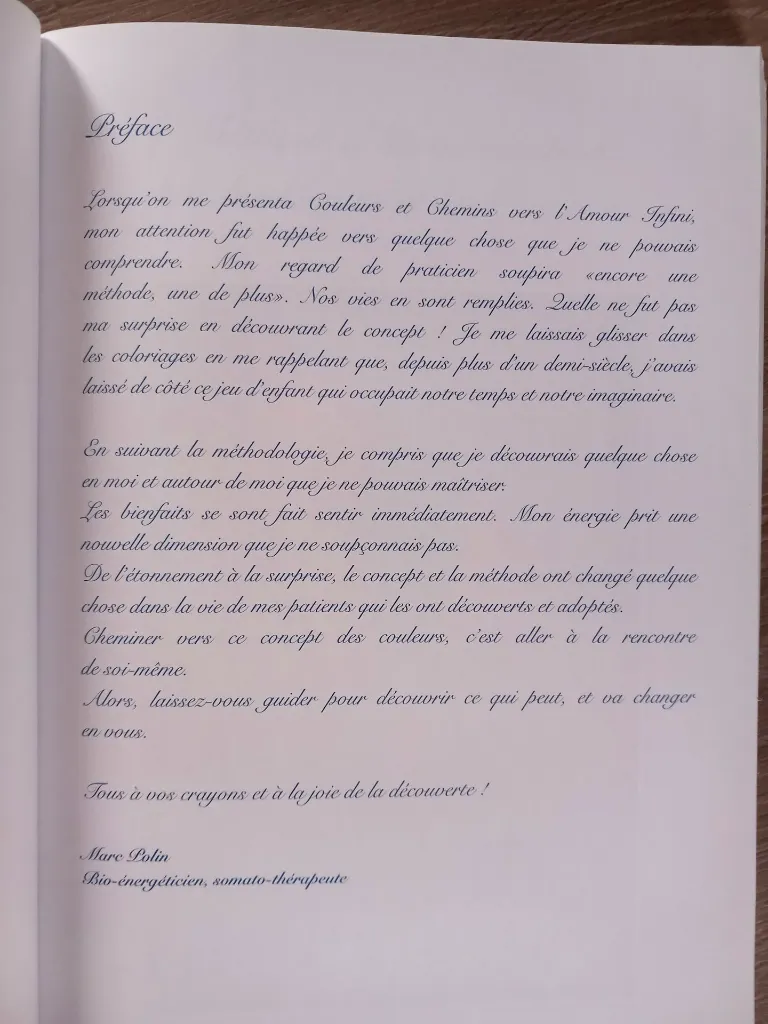 Préface
Lorsqu'on me présenta Couleurs et Chemins vers l'Amour Infini,
mon attention fut happée vers quelque chose que je ne pouvais
comprendre. Mon regard de praticien soupira «encore une
méthode, une de plus». Nos vies en sont remplies. Quelle ne fut pas
ma surprise en découvrant le concept ! Je me laissais glisser dans
les coloriages en me rappelant que, depuis plus d'un demi-siècle, j'avais
laissé de côté ce jeu d'enfant qui occupait notre temps et notre imaginaire.
En suivant la méthodologie, je compris que je découvrais quelque chose
en moi et autour de moi que je ne pouvais maîtriser.
Les bienfaits se sont fait sentir immédiatement. Mon énergie prit une
nouvelle dimension que je ne soupçonnais pas.
De l'étonnement à la surprise, le concept et la méthode ont changé quelque
chose dans la vie de mes patients qui les ont découverts et adoptés.
Cheminer vers ce concept des couleurs, c'est aller à la rencontre
de soi-même.
Alors, laissez-vous guider pour découvrir ce qui peut, et va changer
en vous.
Tous à vos crayons et à la joie de la découverte !
Marc Polin
Bio-énergéticien, somato-thérapeute